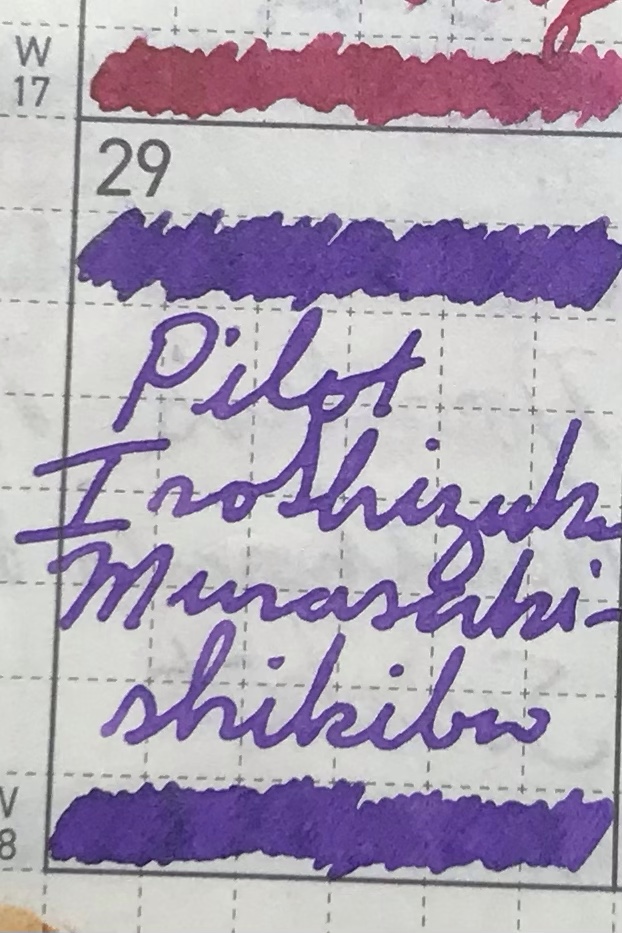 W
17
29
Pilot
Iroshizuku
Murasaki-
shikibu
8